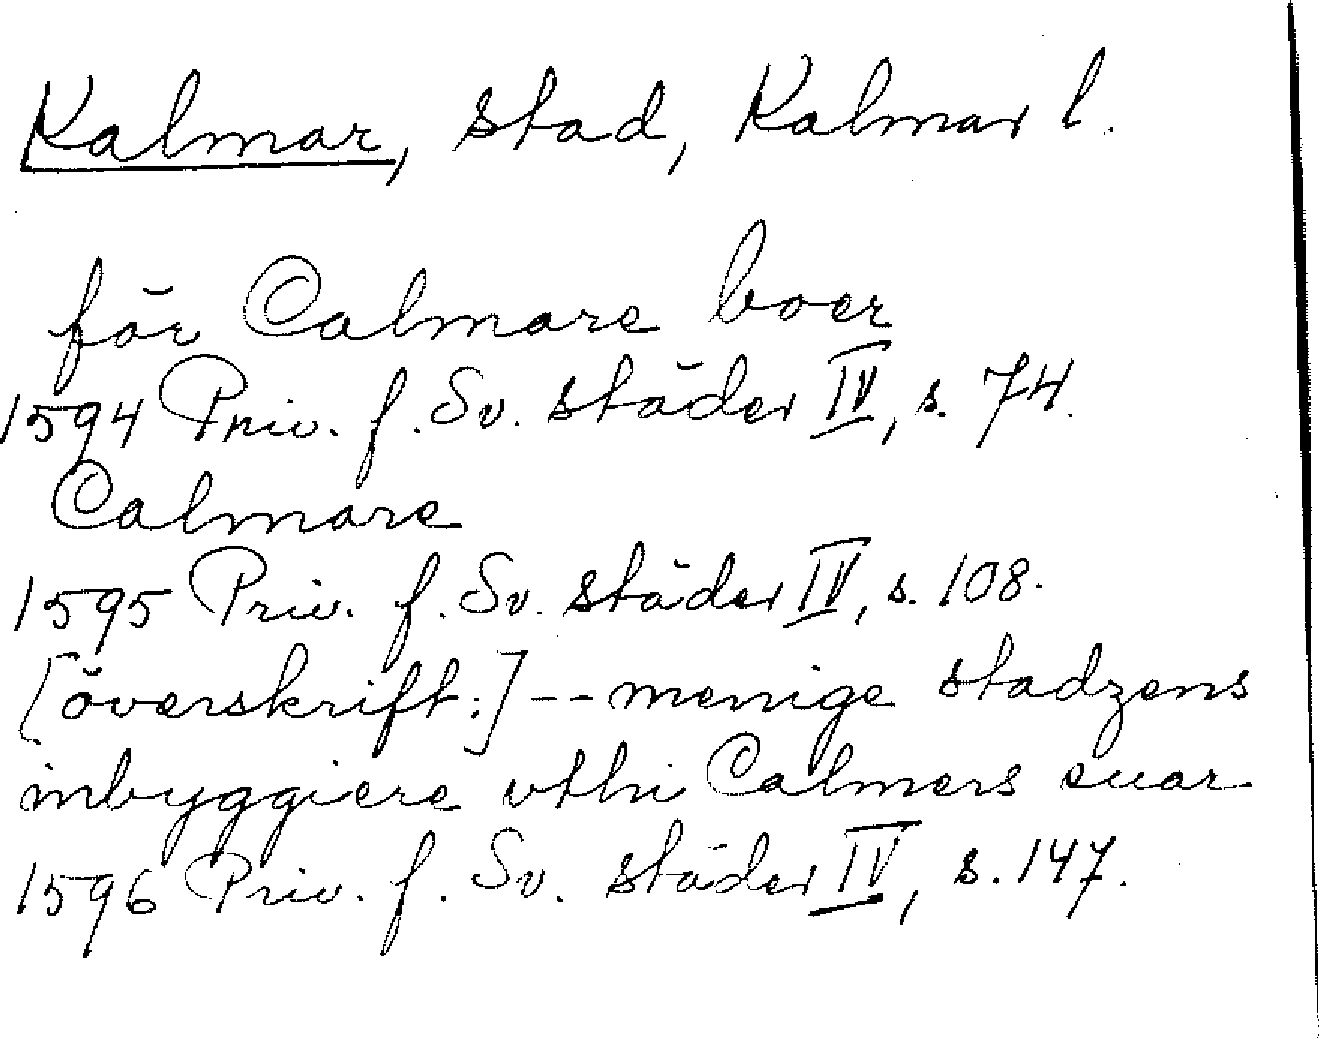 Kalmar, stad, Kalmar l.
för Calmare boer
1594 Priv. f. Sv. städer IV, s. 74.
Calmare
1595 Priv. f. Sv. städer IV, s. 108.
[överskrift:] -- menige stadzens
inbyggiere vthi Calmers suar
1596 Priv. f. Sv. städer IV, s. 147.